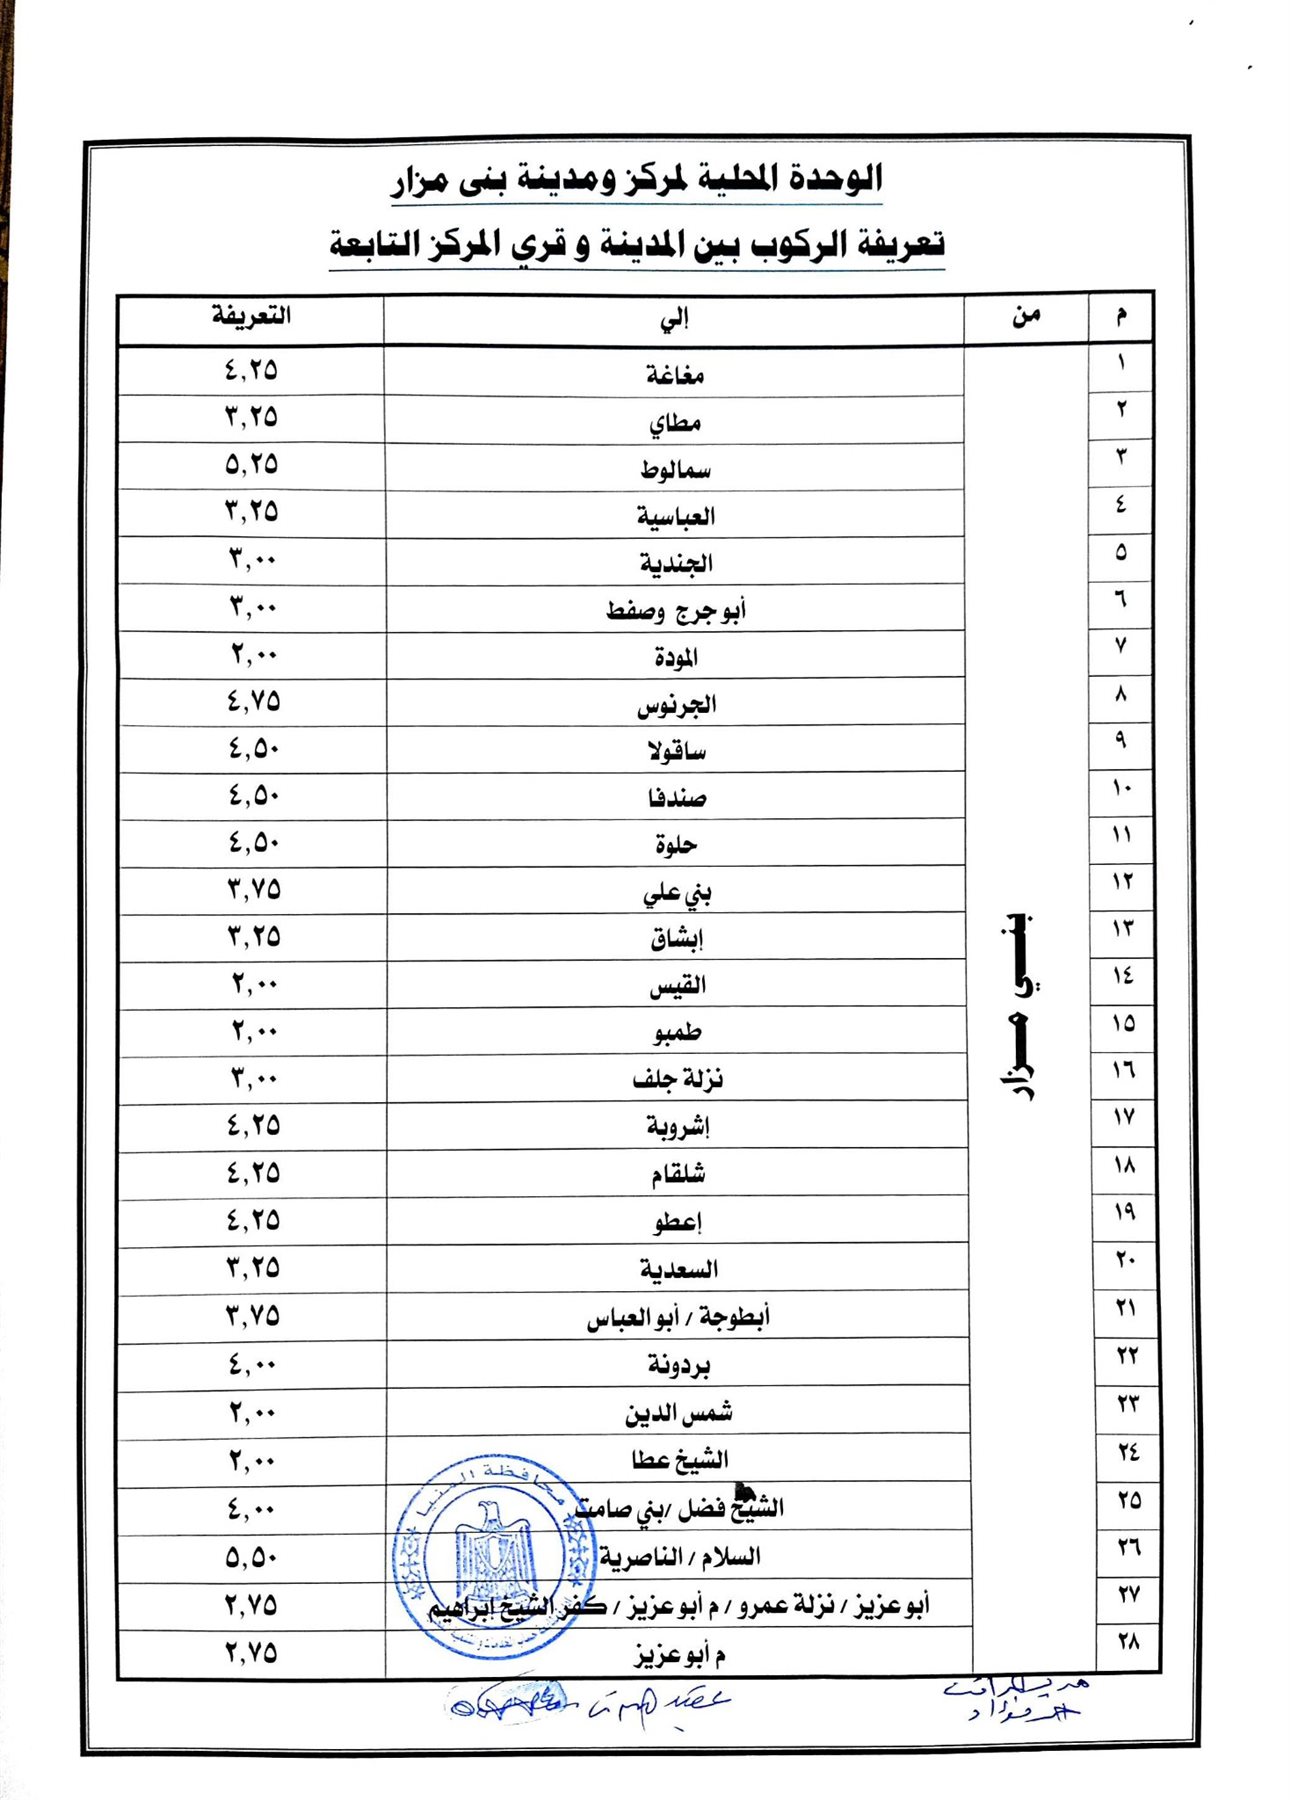 الوحدة المحلية لمركز ومدينة بنى مزار
تعريفة الركوب بين المدينة و قري المركز التابعة
م من إلي التعريفة
١ مغاغة ٤,٢٥
٢ مطاي ٣,٢٥
٣ سمالوط ٥,٢٥
٤ العباسية ٣,٢٥
٥ الجندية ٣,٠٠
٦ أبو جرج وصفط ٣,٠٠
٧ المودة ٢,٠٠
٨ الجرنوس ٤,٧٥
٩ ساقولا ٤,٥٠
١٠ صندفا ٤,٥٠
١١ حلوة ٤,٥٠
١٢ بني علي ٣,٧٥
١٣ إبشاق ٣,٢٥
١٤ القيس ٢,٠٠
١٥ طمبو ٢,٠٠
١٦ نزلة جلف ٣,٠٠
١٧ إشروبة ٤,٢٥
١٨ شلقام ٤,٢٥
١٩ إعطو ٤,٢٥
٢٠ السعدية ٣,٢٥
٢١ أبطوجة / أبو العباس ٣,٧٥
٢٢ بردونة ٤,٠٠
٢٣ شمس الدين ٢,٠٠
٢٤ الشيخ عطا ٢,٠٠
٢٥ الشيخ فضل /بني صامت ٤,٠٠
٢٦ السلام / الناصرية ٥,٥٠
٢٧ أبو عزيز / نزلة عمرو / م أبو عزيز / كفر الشيخ إبراهيم ٢,٧٥
٢٨ م أبو عزيز ٢,٧٥
بنــــي مــــزار
محافظة المنيا